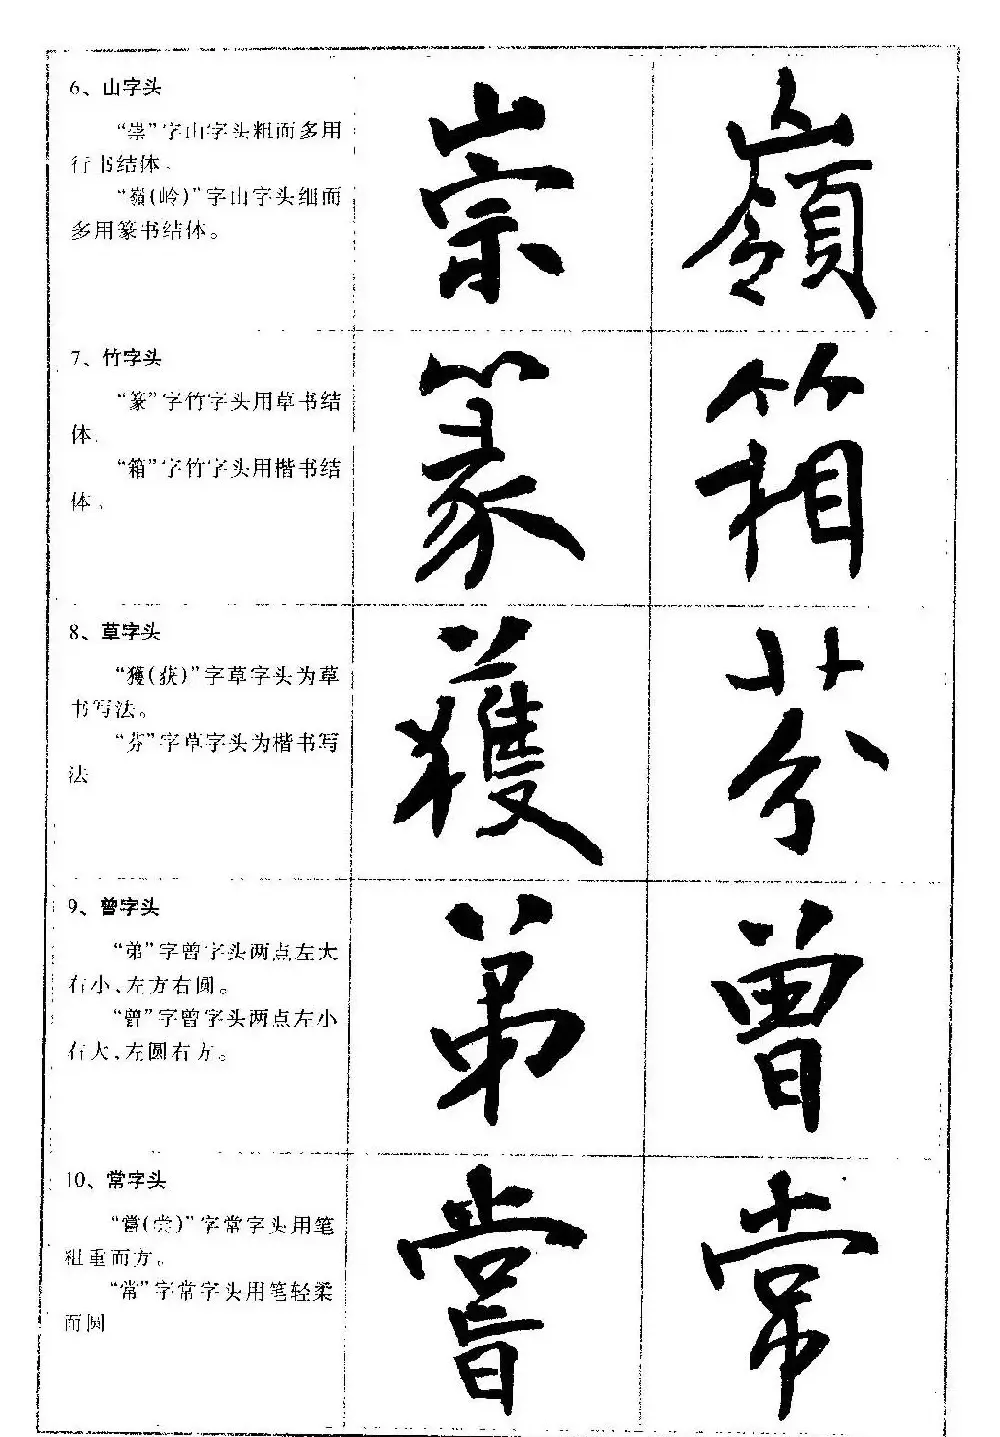 6、山字头
“崇”字山字头粗而多用
行书结体.
“嶺(岭)”字山字头细而
多用篆书结体。
崇 嶺
7、竹字头
“篆”字竹字头用草书结
体.
“箱”字竹字头用楷书结
体.
篆 箱
8、草字头
“獲(获)”字草字头为草
书写法。
“芬”字草字头为楷书写
法
獲 芬
9、曾字头
“弟”字曾字头两点左大
右小、左方右圆。
“曾”字曾字头两点左小
右大,左圆右方。
弟 曾
10、常字头
“嘗(尝)”字常字头用笔
粗重而方。
“常”字常字头用笔轻柔
而圆
嘗 常